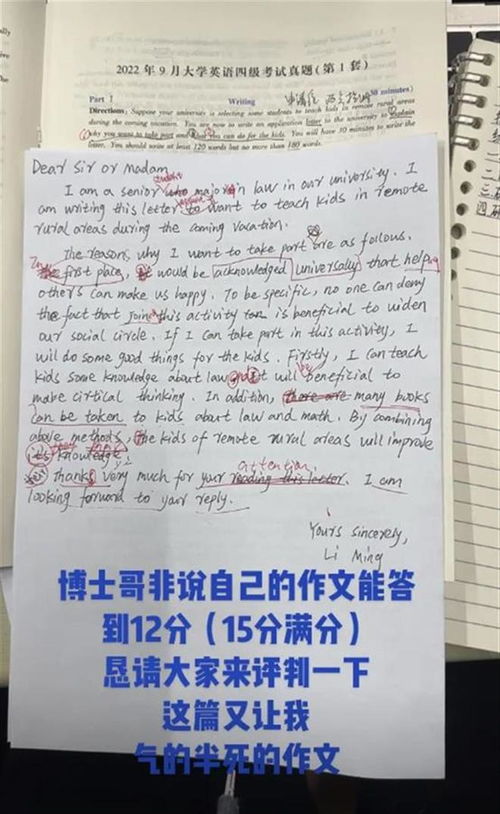 2022年9月大学英语四级考试真题(第1套)
Part I Writing (30 minutes)
Directions: Suppose your university is selecting some students to teach kids in remote rural areas
during the coming vacation. You are now to write an application letter to the university to explain
why you want to take part and what you can do for the kids. You will have 30 minutes to write the
letter. You should write at least 120 words but no more than 180 words.
Dear Sir or Madam,
I am a senior student who major in law in our university. I
am writing this letter to want to teach kids in remote
rural areas during the coming vacation.
The reasons why I want to take part are as follows.
the first place, it would be acknowledged universally that help
others can make us happy. To be specific, no one can deny
the fact that join this activity is beneficial to widen
our social circle. If I can take part in this activity, I
will do some good things for the kids. Firstly, I can teach
kids some knowledge about law and it will beneficial to
make cirtical thinking. In addition, there are many books
can be taken to kids about law and math. By combining
above methods, the kids of remote rural areas will improve
its knowledge
Thanks very much for your reading this letter. I am
attention.
looking forward to your reply.
Yours sincerely,
Li Ming
博士哥非说自己的作文能答
到12分(15分满分)
恳请大家来评判一下
这篇又让我
气的半死的作文